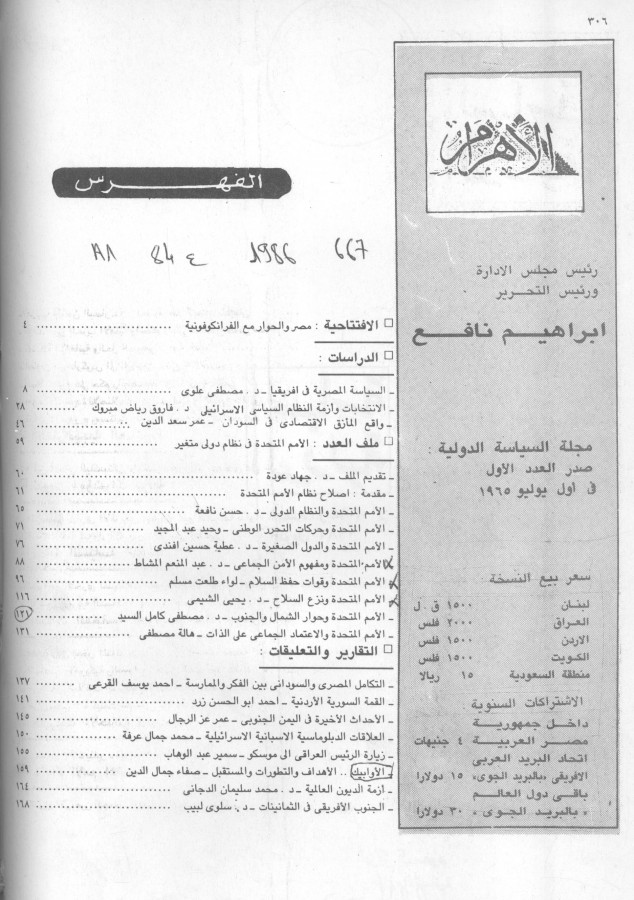 ٣٠٦
الأهرام
رئيس مجلس الادارة
ورئيس التحرير
ابراهيم نافع
مجلة السياسة الدولية :
صدر العدد الأول
فى أول يوليو ١٩٦٥
سعر بيع النسخة
لبنان ١٥٠٠ ق . ل
العراق ٢٠٠٠ فلس
الاردن ١٥٠٠ فلس
الكويت ١٥٠٠ فلس
منطقة السعودية ١٥ ريالا
الاشتراكات السنوية :
داخل جمهورية
مصر العربية ٤ جنيهات
اتحاد البريد العربى
الافريقى «بالبريد الجوى» ١٥ دولارا
باقى دول العالم
« بالبريد الجوى » ٣٠ دولارا
الفهرس
٨١ 84 ع 1986 667
□ الافتتاحية : مصر والحوار مع الفرانكوفونية ٤
□ الدراسات :
ـ السياسة المصرية فى افريقيا ـ د . مصطفى علوى ٨
ـ الانتخابات وأزمة النظام السياسى الاسرائيلى د . فاروق رياض مبروك ٢٨
ـ واقع المازق الاقتصادى فى السودان ـ عمر سعد الدين ٤٦
□ ملف العدد : الأمم المتحدة فى نظام دولى متغير ٥٩
ـ تقديم الملف ـ د . جهاد عودة ٦٠
ـ مقدمة : اصلاح نظام الأمم المتحدة ٦١
ـ الأمم المتحدة والنظام الدولى ـ د . حسن نافعة ٦٥
ـ الأمم المتحدة وحركات التحرر الوطنى ـ وحيد عبد المجيد ٧١
ـ الأمم المتحدة والدول الصغيرة ـ د . عطية حسين افندى ٧٦
ـ الأمم المتحدة ومفهوم الأمن الجماعى ـ د . عبد المنعم المشاط ٨٨
ـ الأمم المتحدة وقوات حفظ السلام ـ لواء طلعت مسلم ٩٦
ـ الأمم المتحدة ونزع السلاح ـ د . يحيى الشيمى ١١٦
ـ الأمم المتحدة وحوار الشمال والجنوب ـ د . مصطفى كامل السيد ١٢١
ـ الأمم المتحدة والاعتماد الجماعى على الذات ـ هالة مصطفى ١٣١
□ التقارير والتعليقات :
ـ التكامل المصرى والسودانى بين الفكر والممارسة ـ احمد يوسف القرعى ١٣٧
ـ القمة السورية الأردنية ـ احمد ابو الحسن زرد ١٤١
ـ الأحداث الأخيرة فى اليمن الجنوبى ـ عمر عز الرجال ١٤٥
ـ العلاقات الدبلوماسية الاسبانية الاسرائيلية ـ محمد جمال عرفة ١٥٠
ـ زيارة الرئيس العراقى الى موسكو ـ سمير عبد الوهاب ١٥٥
ـ الأوابيك .. الأهداف والتطورات والمستقبل ـ صفاء جمال الدين ١٥٩
ـ أزمة الديون العالمية ـ د . محمد سليمان الدجانى ١٦٤
ـ الجنوب الأفريقى فى الثمانينات ـ د . سلوى لبيب ١٦٨